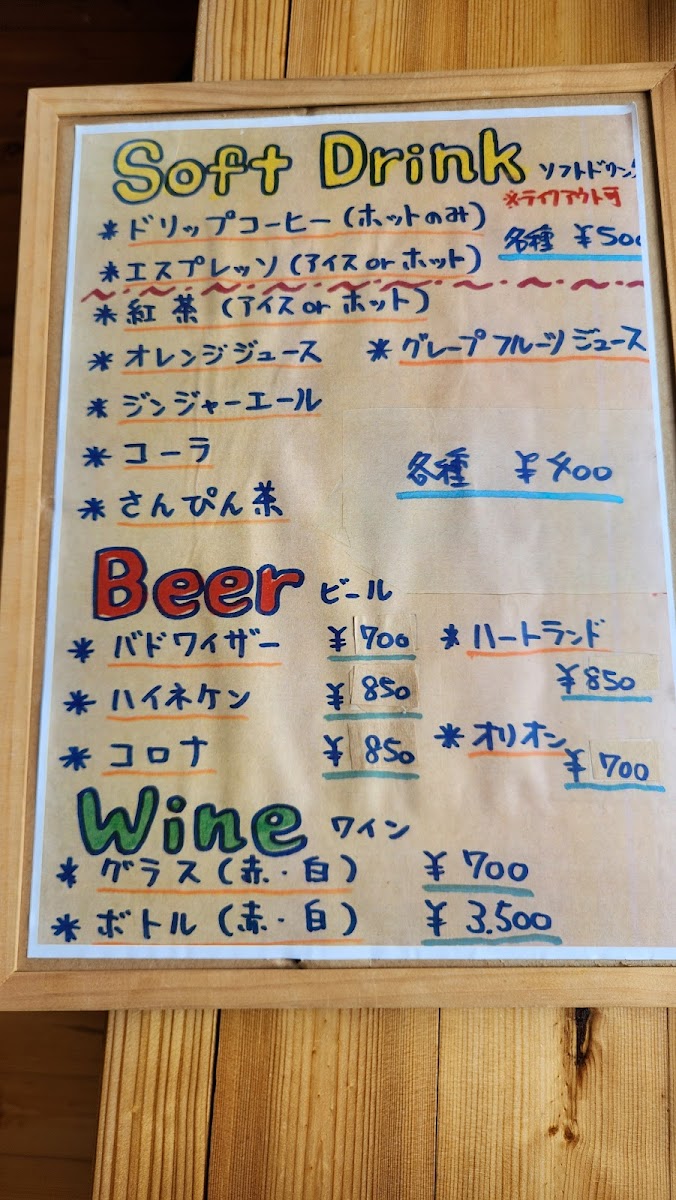 Soft Drink ソフトドリンク
※テイクアウト可
* ドリップコーヒー (ホットのみ)
* エスプレッソ (アイス or ホット)
各種 ¥500
* 紅茶 (アイス or ホット)
* オレンジジュース * グレープフルーツジュース
* ジンジャーエール
* コーラ
各種 ¥400
* さんぴん茶
Beer ビール
* バドワイザー ¥700 * ハートランド
¥850
* ハイネケン ¥850
* コロナ ¥850 * オリオン
¥700
Wine ワイン
* グラス (赤・白) ¥700
* ボトル (赤・白) ¥3.500